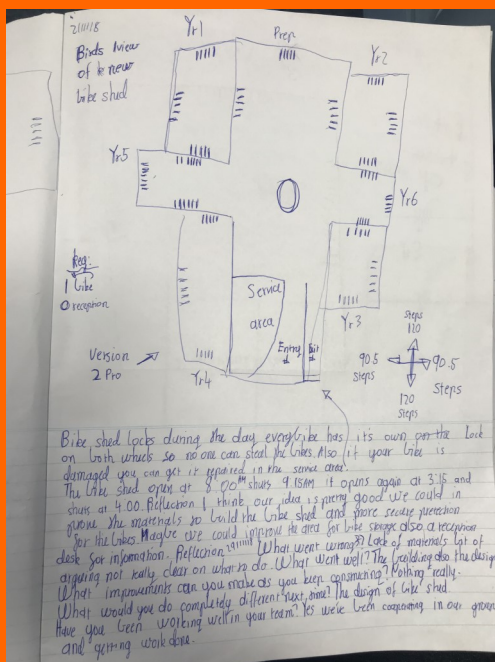 2/11/18
Birds view
of new
bike shed
Yr1
Prep
Yr2
Yr5
Yr6
Key:
| bike
O reception
Service
area
Entry
Exit
Yr3
Version
2 Pro
Yr4
Steps
120
90.5
Steps
90.5
Steps
120
Steps
Bike shed locks during the day every bike has its own on the lock
on both wheels so no one can steal the bikes. Also if your bike is
damaged you can get it repaired in the service area.
The bike shed open at 8:00AM shuts 9.15AM it opens again at 3:15 and
shuts at 4.00. Reflection I think our idea is pretty good we could im
prove the materials to build the bike shed and more secure protection
for the bikes. Maybe we could improve the area for bike storage also a reception
desk for information. Reflection 29/11/18 What went wrong? Lack of materials lot of
arguing not really clear on what to do. What went well? The building also the design
What improvements can you make as you keep constructing? Nothing really.
What would you do completely different next time? The design of bike shed
Have you been working well in your team? Yes we've been cooperating in our group
and getting work done.